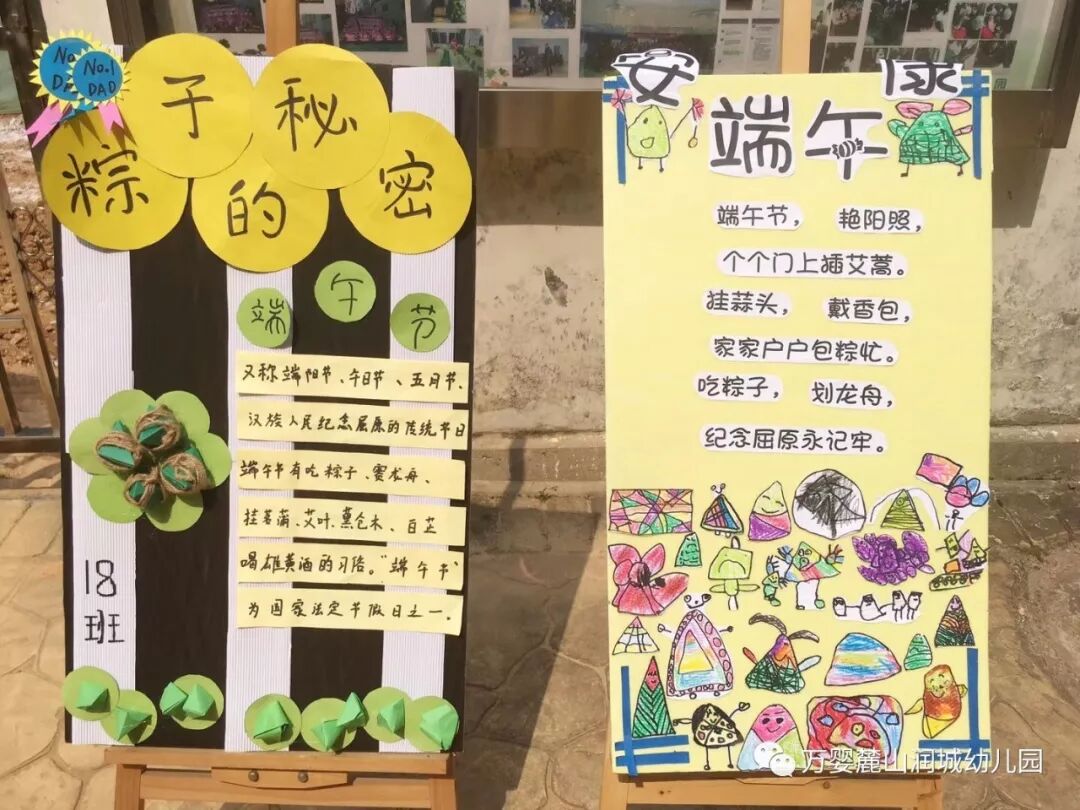 No.1
DAD
粽子的秘密
端午节
又称端阳节、午日节、五月节、
汉族人民纪念屈原的传统节日
端午节有吃粽子、赛龙舟、
挂菖蒲、艾叶、薰仓术、白芷
喝雄黄酒的习俗。"端午节"
为国家法定节假日之一。
18
班
安
康
端午
端午节， 艳阳照，
个个门上插艾蒿。
挂蒜头， 戴香包，
家家户户包粽忙。
吃粽子， 划龙舟，
纪念屈原永记牢。
万婴麓山润城幼儿园